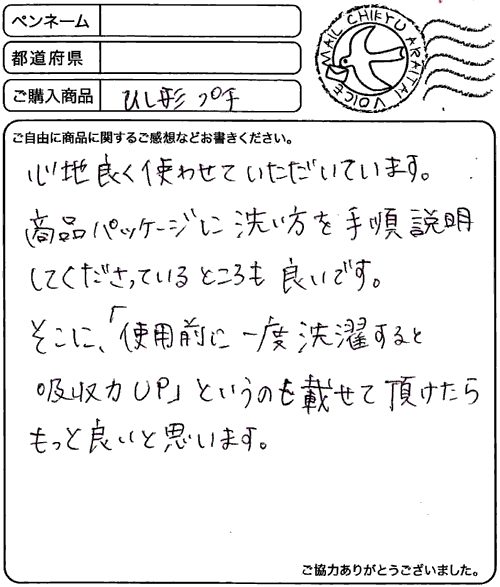 ペンネーム
都道府県
ご購入商品 ひし形 プチ
MAIL CHIEYU ARAITAI VOICE
ご自由に商品に関するご感想などお書きください。
心地良く使わせていただいています。
商品パッケージに洗い方を手順説明
してくださっているところも良いです。
そこに、「使用前に一度洗濯すると
吸収力UP」というのも載せて頂けたら
もっと良いと思います。
ご協力ありがとうございました。